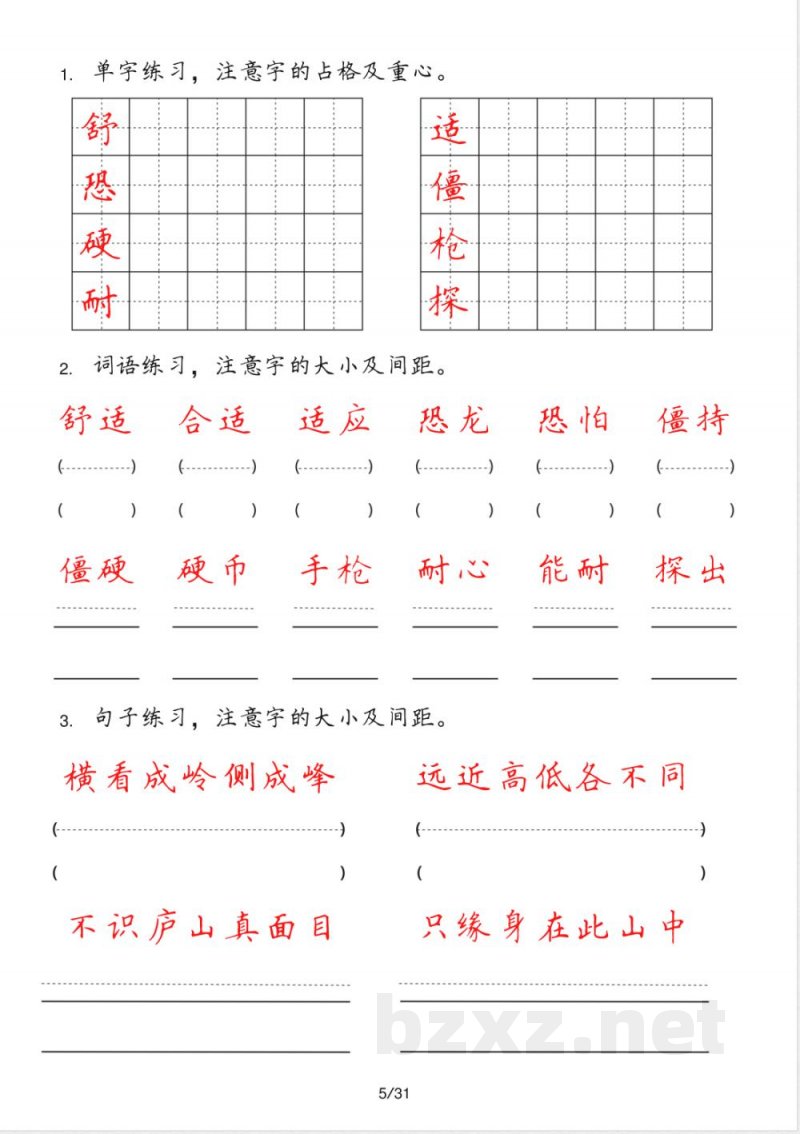 1. 单字练习，注意字的占格及重心。
舒 适
恐 僵
硬 枪
耐 探
2. 词语练习，注意字的大小及间距。
舒适 合适 适应 恐龙 恐怕 僵持
( ) ( ) ( ) ( ) ( ) ( )
( ) ( ) ( ) ( ) ( ) ( )
僵硬 硬币 手枪 耐心 能耐 探出
3. 句子练习，注意字的大小及间距。
横看成岭侧成峰 远近高低各不同
( ) ( )
( ) ( )
不识庐山真面目 只缘身在此山中
bzxz.net
5/31